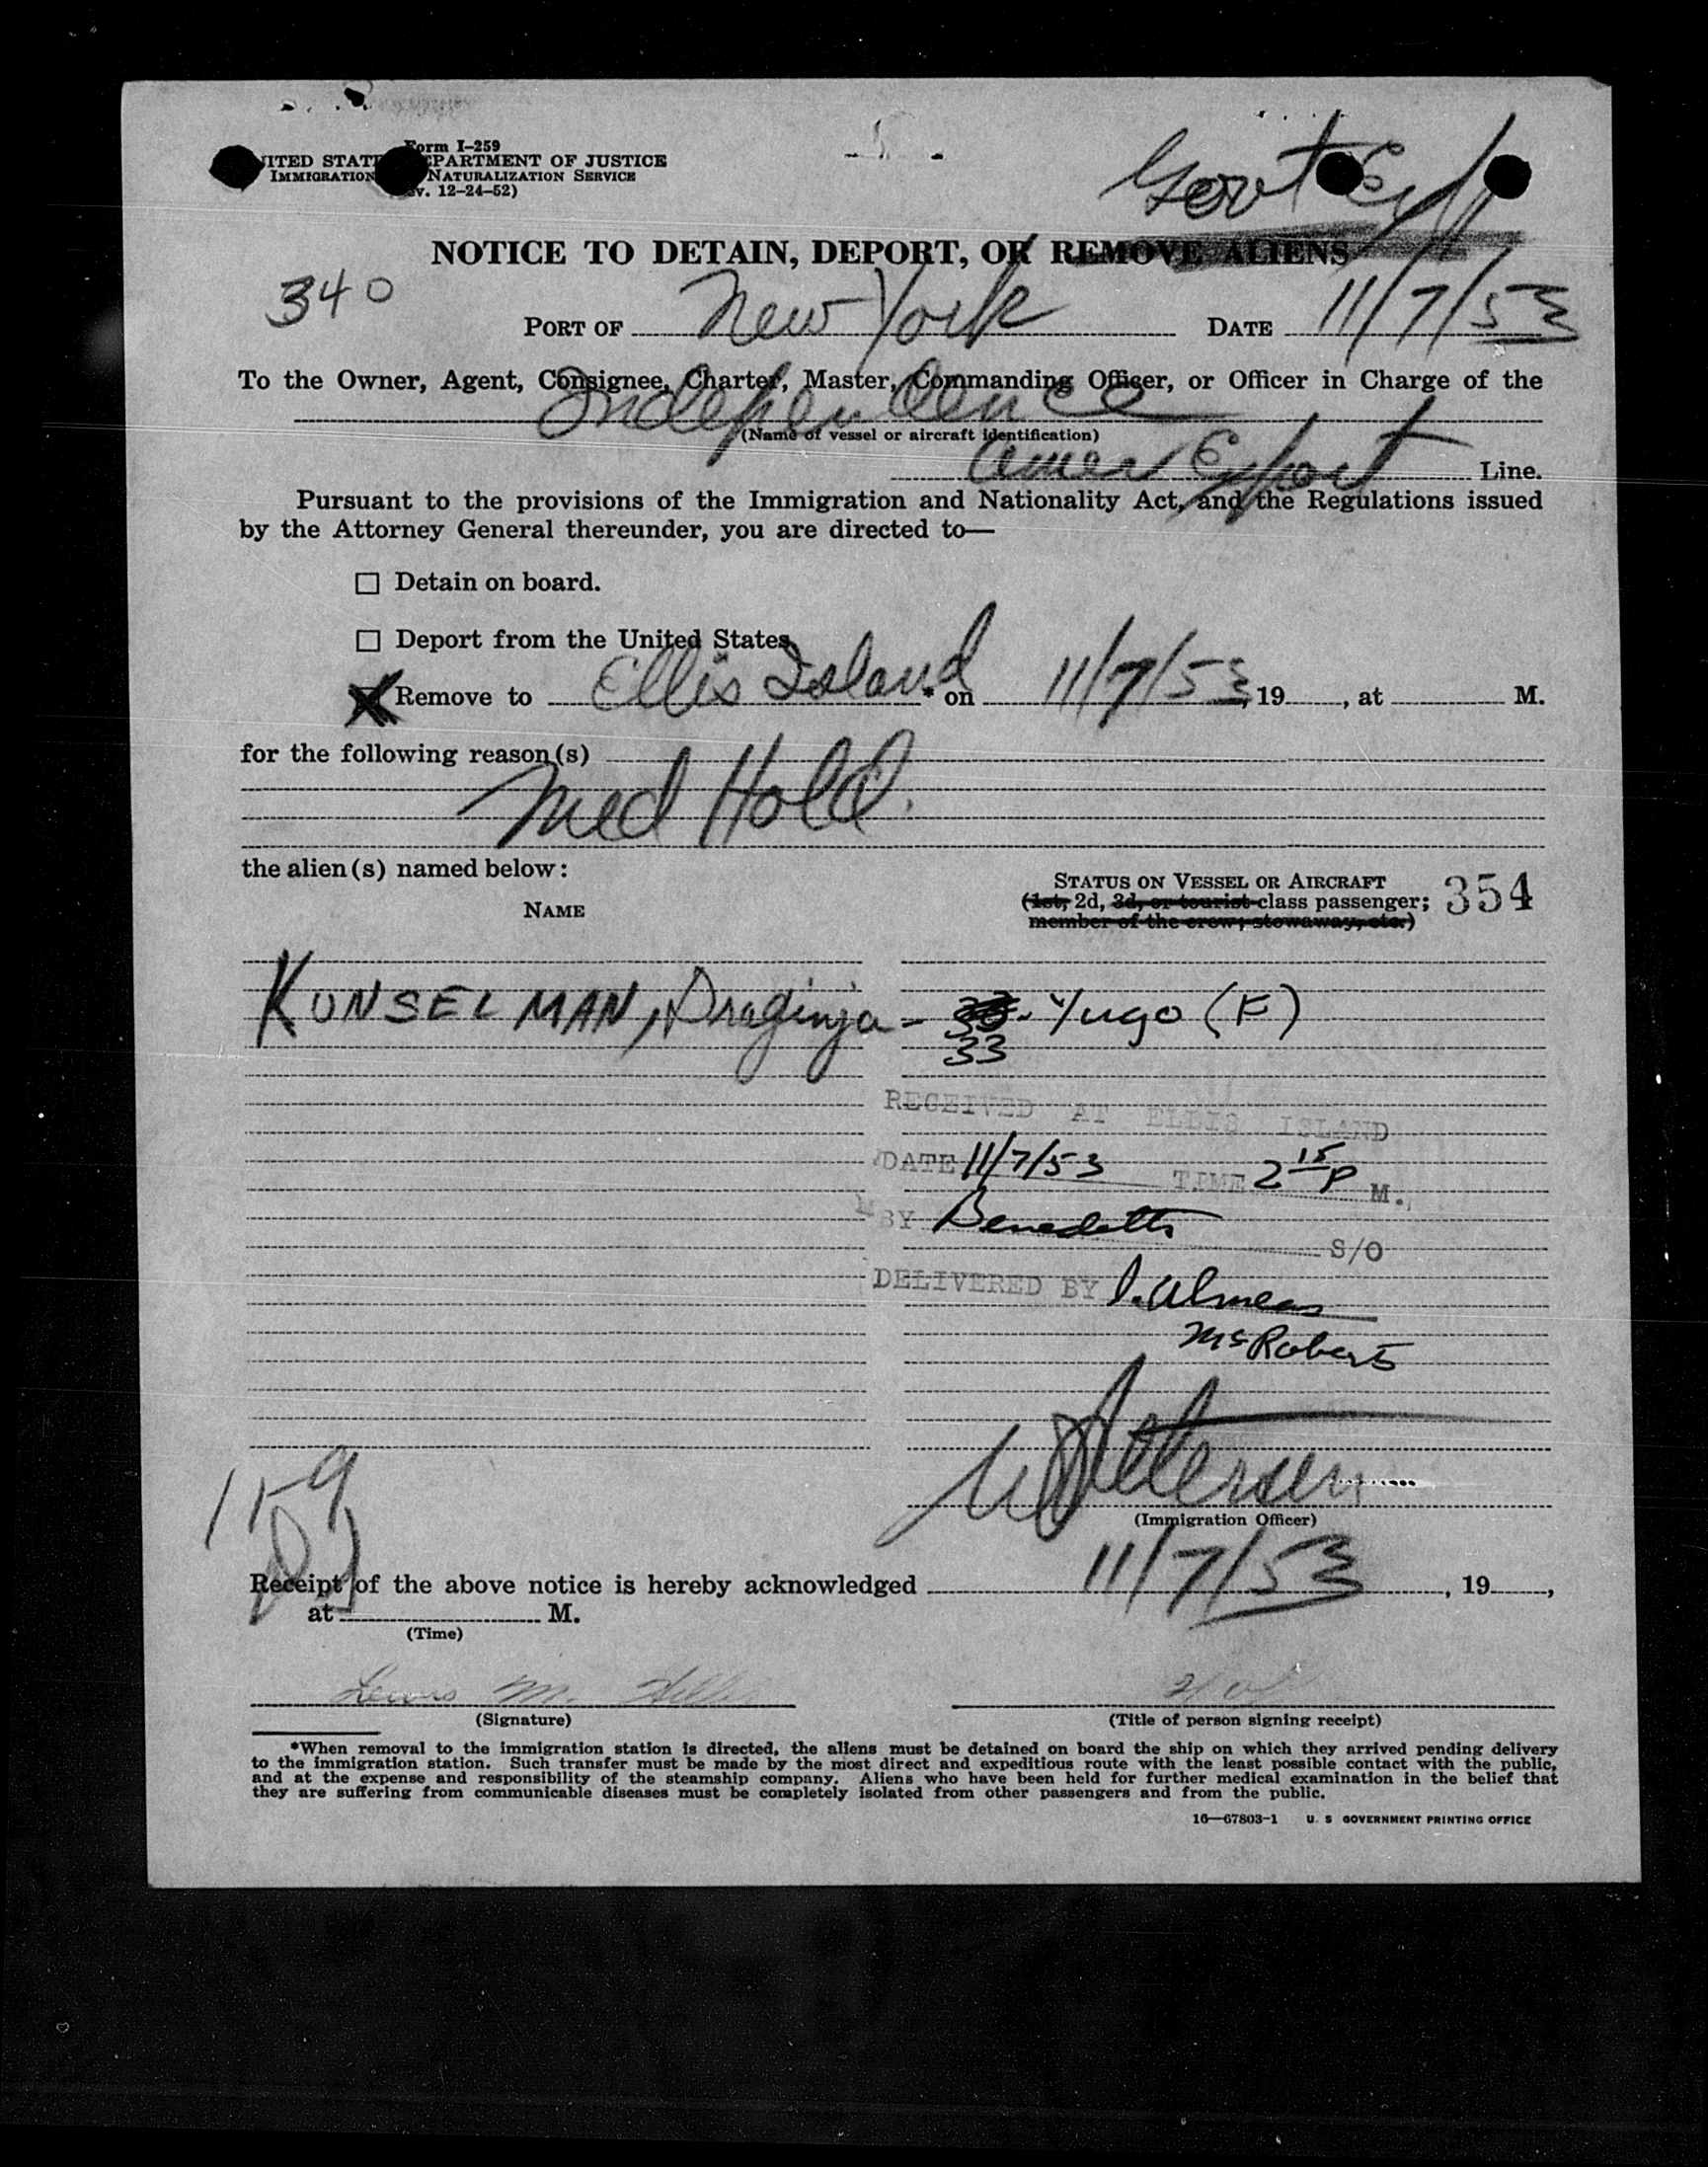 Form I-259
UNITED STATES DEPARTMENT OF JUSTICE
IMMIGRATION NATURALIZATION SERVICE
v. 12-24-52)
Govt Exp
NOTICE TO DETAIN, DEPORT, OR REMOVE ALIENS
340
PORT OF New York DATE 11/7/53
To the Owner, Agent, Consignee, Charter, Master, Commanding Officer, or Officer in Charge of the
Independence
(Name of vessel or aircraft identification)
Amer Export Line.
Pursuant to the provisions of the Immigration and Nationality Act, and the Regulations issued
by the Attorney General thereunder, you are directed to—
☐ Detain on board.
☐ Deport from the United States.
☒ Remove to Ellis Island * on 11/7/53, 19, at M.
for the following reason(s)
Med Hold.
the alien(s) named below:
STATUS ON VESSEL OR AIRCRAFT
(1st, 2d, 3d, or tourist class passenger; 354
member of the crew; stowaway, etc.)
NAME
KUNSELMAN, Draginja - Yugo (F)
33
RECEIVED AT ELLIS ISLAND
DATE 11/7/53 TIME 2 15 P M.
BY Benedetti
S/O
DELIVERED BY
McRoberts
Petersen
(Immigration Officer)
159
11/7/53
Receipt of the above notice is hereby acknowledged , 19 ,
at M.
(Time)
Lewis M.
(Signature) (Title of person signing receipt)
*When removal to the immigration station is directed, the aliens must be detained on board the ship on which they arrived pending delivery
to the immigration station. Such transfer must be made by the most direct and expeditious route with the least possible contact with the public,
and at the expense and responsibility of the steamship company. Aliens who have been held for further medical examination in the belief that
they are suffering from communicable diseases must be completely isolated from other passengers and from the public.
16—67803-1 U. S GOVERNMENT PRINTING OFFICE